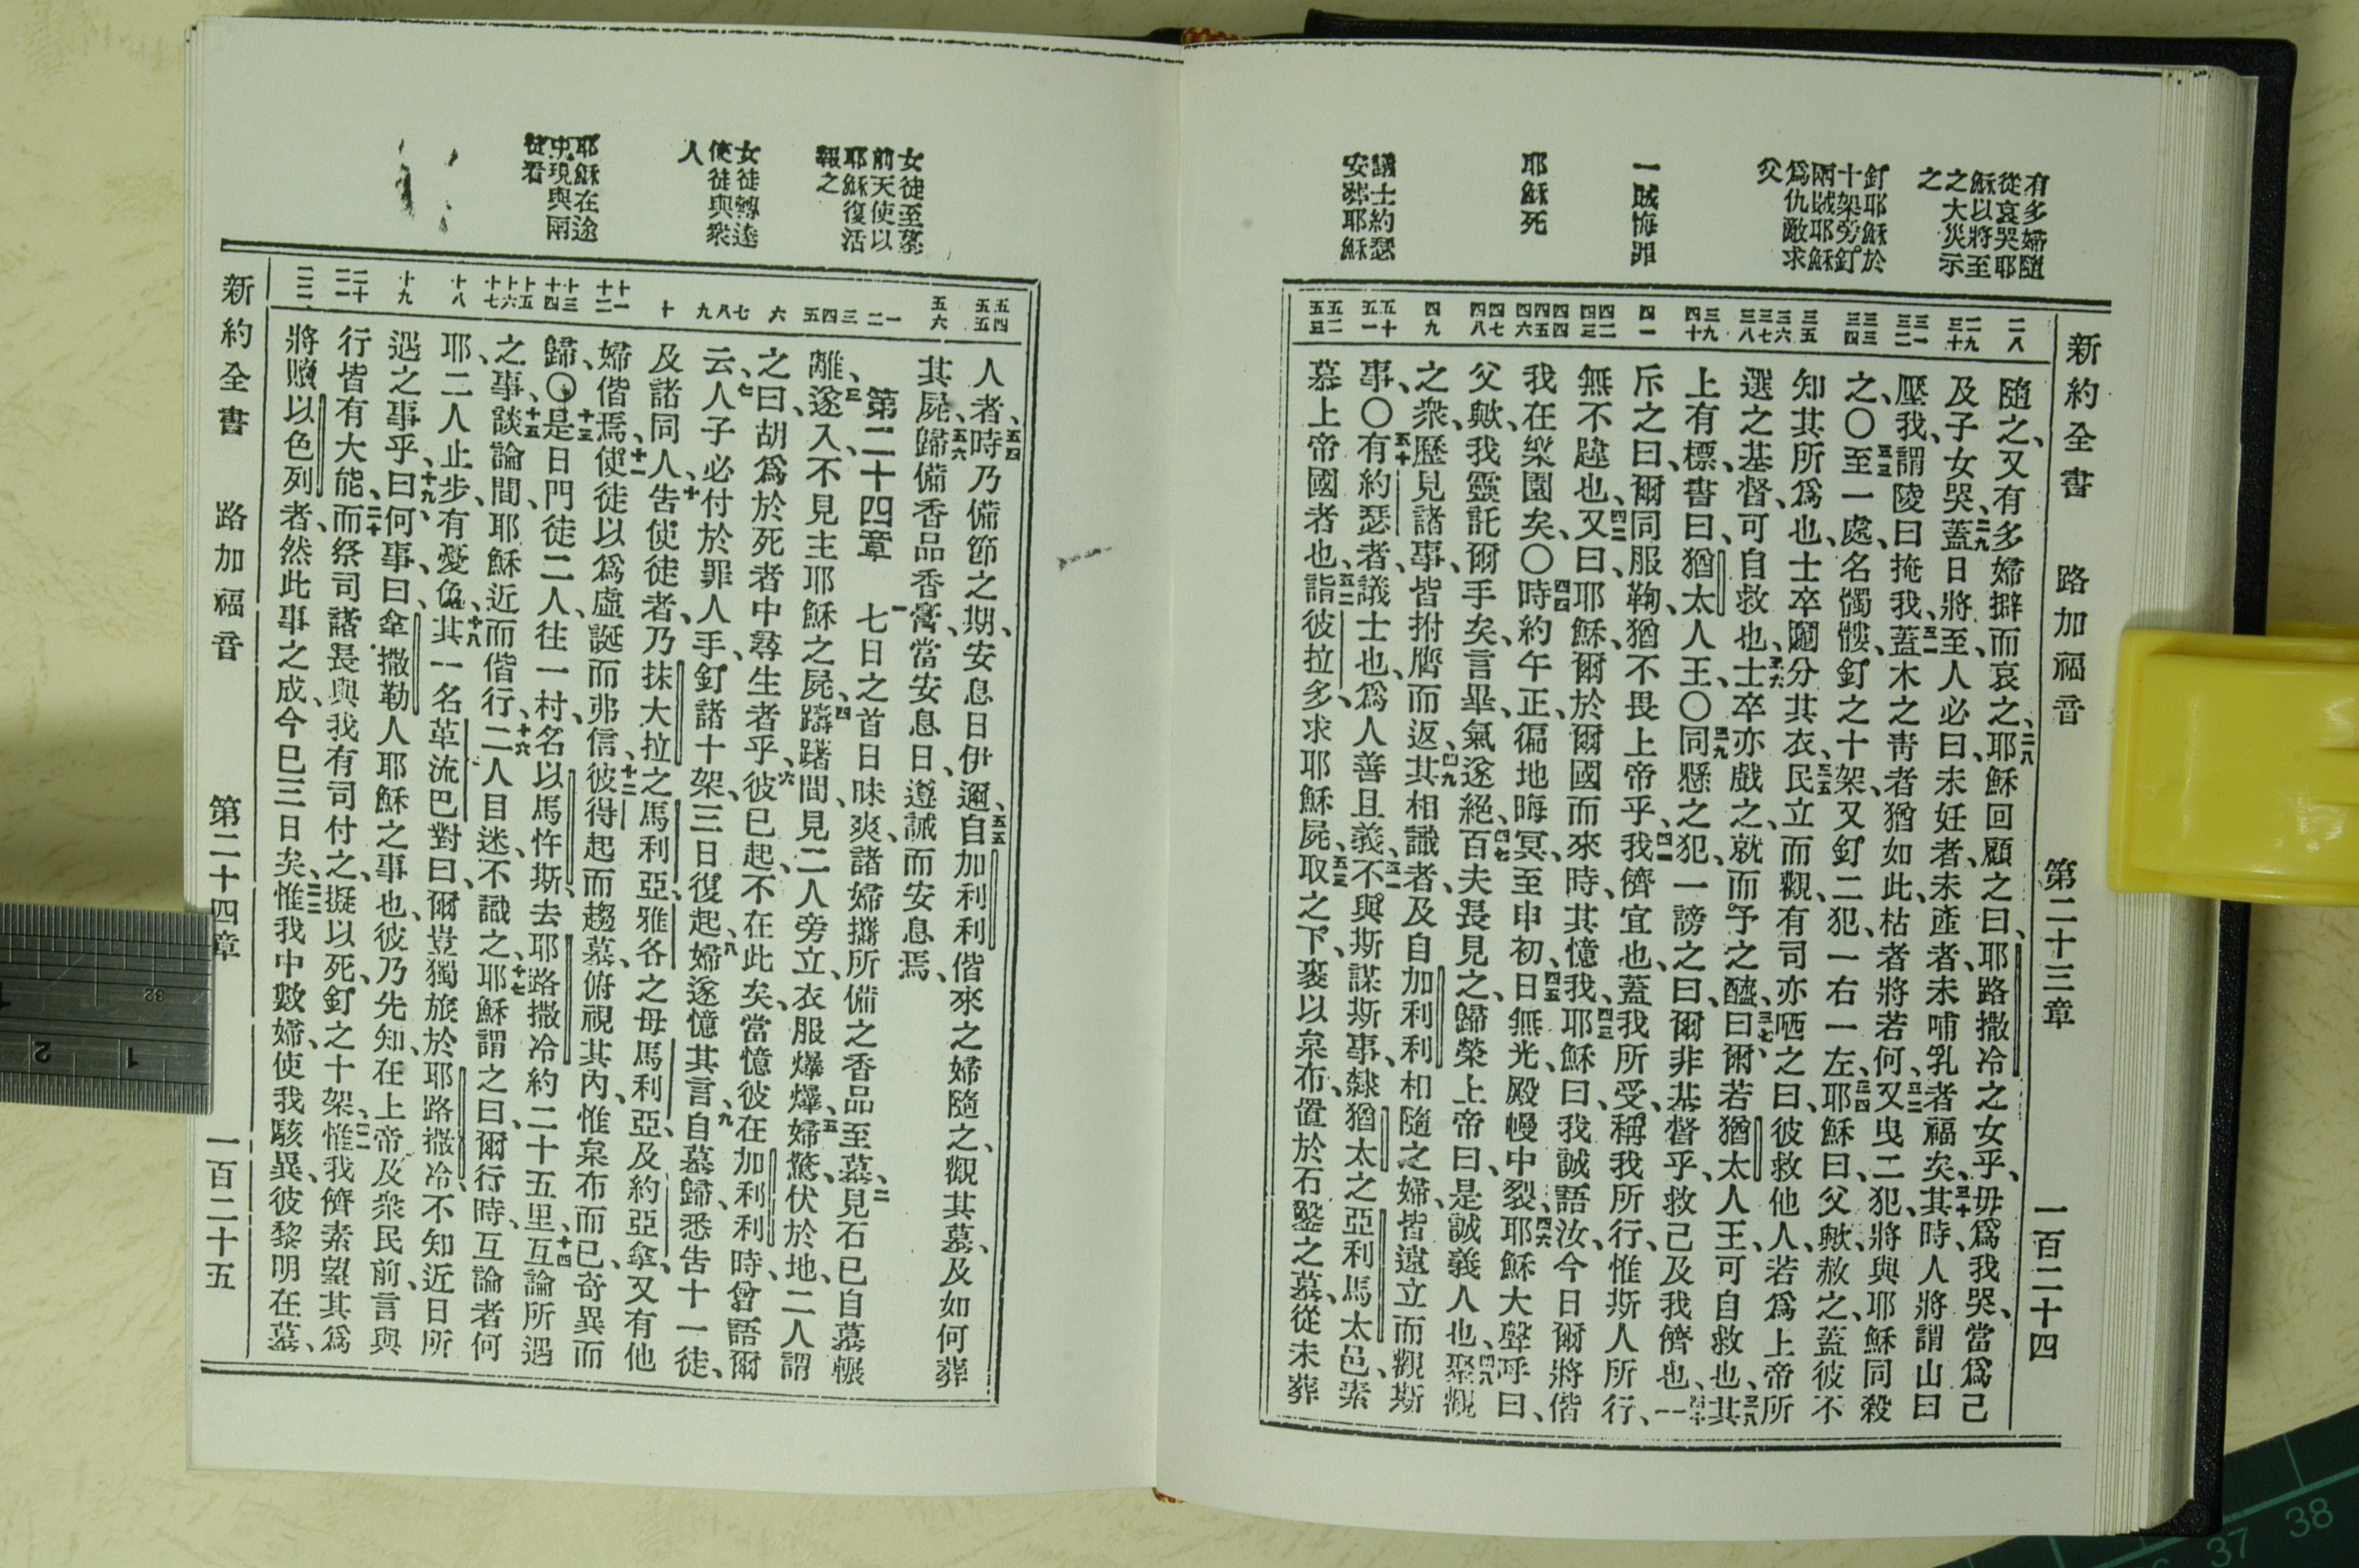 新約全書 路加福音 第二十三章 一百二十四
有多婦隨
從哀哭耶
穌以將至
之大災示
之
釘耶穌於
十架旁釘
兩賊耶穌
爲仇敵求
父
一賊悔罪
耶穌死
議士約瑟
安葬耶穌
二八
二九
三十
三一
三二
三三
三四
三五
三六
三七
三八
三九
四十
四一
四二
四三
四四
四五
四六
四七
四八
四九
五十
五一
五二
五三
隨之、又有多婦擗而哀之、二八耶穌回顧之曰、耶路撒冷之女乎、毋爲我哭、當爲己
及子女哭、二九蓋日將至、人必曰、未妊者、未產者、未哺乳者福矣、三十其時、人將謂山曰
壓我、謂陵曰掩我、三一蓋木之靑者猶如此、枯者將若何、三二又曳二犯、將與耶穌同殺
之、〇三三至一處、名髑髏、釘之十架、又釘二犯、一右一左、三四耶穌曰、父歟、赦之、蓋彼不
知其所爲也、士卒鬮分其衣、三五民立而觀、有司亦哂之曰、彼救他人、若爲上帝所
選之基督、可自救也、三六士卒亦戲之、就而予之醯、三七曰、爾若猶太人王、可自救也、三八其
上有標、書曰、猶太人王、〇三九同懸之犯、一謗之曰、爾非基督乎、救己及我儕也、四十一
斥之曰、爾同服鞫、猶不畏上帝乎、四一我儕宜也、蓋我所受、稱我所行、惟斯人所行、
無不韙也、四二又曰、耶穌、爾於爾國而來時、其憶我、四三耶穌曰、我誠語汝、今日爾將偕
我在樂園矣、〇四四時約午正、徧地晦冥、至申初、四五日無光、殿幔中裂、四六耶穌大聲呼曰、
父歟、我靈託爾手矣、言畢、氣遂絕、四七百夫長見之、歸榮上帝曰、是誠義人也、四八聚觀
之衆、歷見諸事、皆拊膺而返、四九其相識者、及自加利利相隨之婦、皆遠立而觀斯
事、〇五十有約瑟者、議士也、爲人善且義、五一不與斯謀斯事、隸猶太之亞利馬太邑、素
慕上帝國者也、五二詣彼拉多、求耶穌屍、五三取之下、裹以枲布、置於石鑿之墓、從未葬
女徒至墓
前天使以
耶穌復活
報之
女徒轉達
使徒與衆
人
耶穌在途
中現與兩
徒看
五四
五五
五六
一
二
三
四
五
六
七
八
九
十
十一
十二
十三
十四
十五
十六
十七
十八
十九
二十
二一
二二
人者、五四時乃備節之期、安息日伊邇、五五自加利利偕來之婦隨之、觀其墓、及如何葬
其屍、五六歸備香品香膏、當安息日、遵誡而安息焉、
第二十四章 一七日之首日昧爽、諸婦攜所備之香品至墓、二見石已自墓輾
離、三遂入、不見主耶穌之屍、四躊躇間、見二人旁立、衣服爆爗、五婦驚伏於地、二人謂
之曰、胡爲於死者中尋生者乎、六彼已起、不在此矣、當憶彼在加利利時、曾語爾
云、七人子必付於罪人手、釘諸十架、三日復起、八婦遂憶其言、九自墓歸、悉吿十一徒、
及諸同人、十吿使徒者、乃抹大拉之馬利亞、雅各之母馬利亞、及約亞拿、又有他
婦偕焉、十一使徒以爲虛誕而弗信、十二彼得起而趨墓、俯視其內、惟枲布而已、奇異而
歸、〇十三是日門徒二人、往一村、名以馬忤斯、去耶路撒冷約二十五里、十四互論所遇
之事、十五談論間、耶穌近而偕行、十六二人目迷、不識之、十七耶穌謂之曰、爾行時、互論者何
耶、二人止步、有憂色、十八其一名革流巴對曰、爾豈獨旅於耶路撒冷、不知近日所
遇之事乎、十九曰、何事、曰、拿撒勒人耶穌之事也、彼乃先知、在上帝及衆民前、言與
行皆有大能、二十而祭司諸長與我有司付之、擬以死、釘之十架、二一惟我儕素望其爲
將贖以色列者、然此事之成、今已三日矣、二二惟我中數婦、使我駭異、彼黎明在墓、
新約全書 路加福音 第二十四章 一百二十五
32
1
2
1
37
38